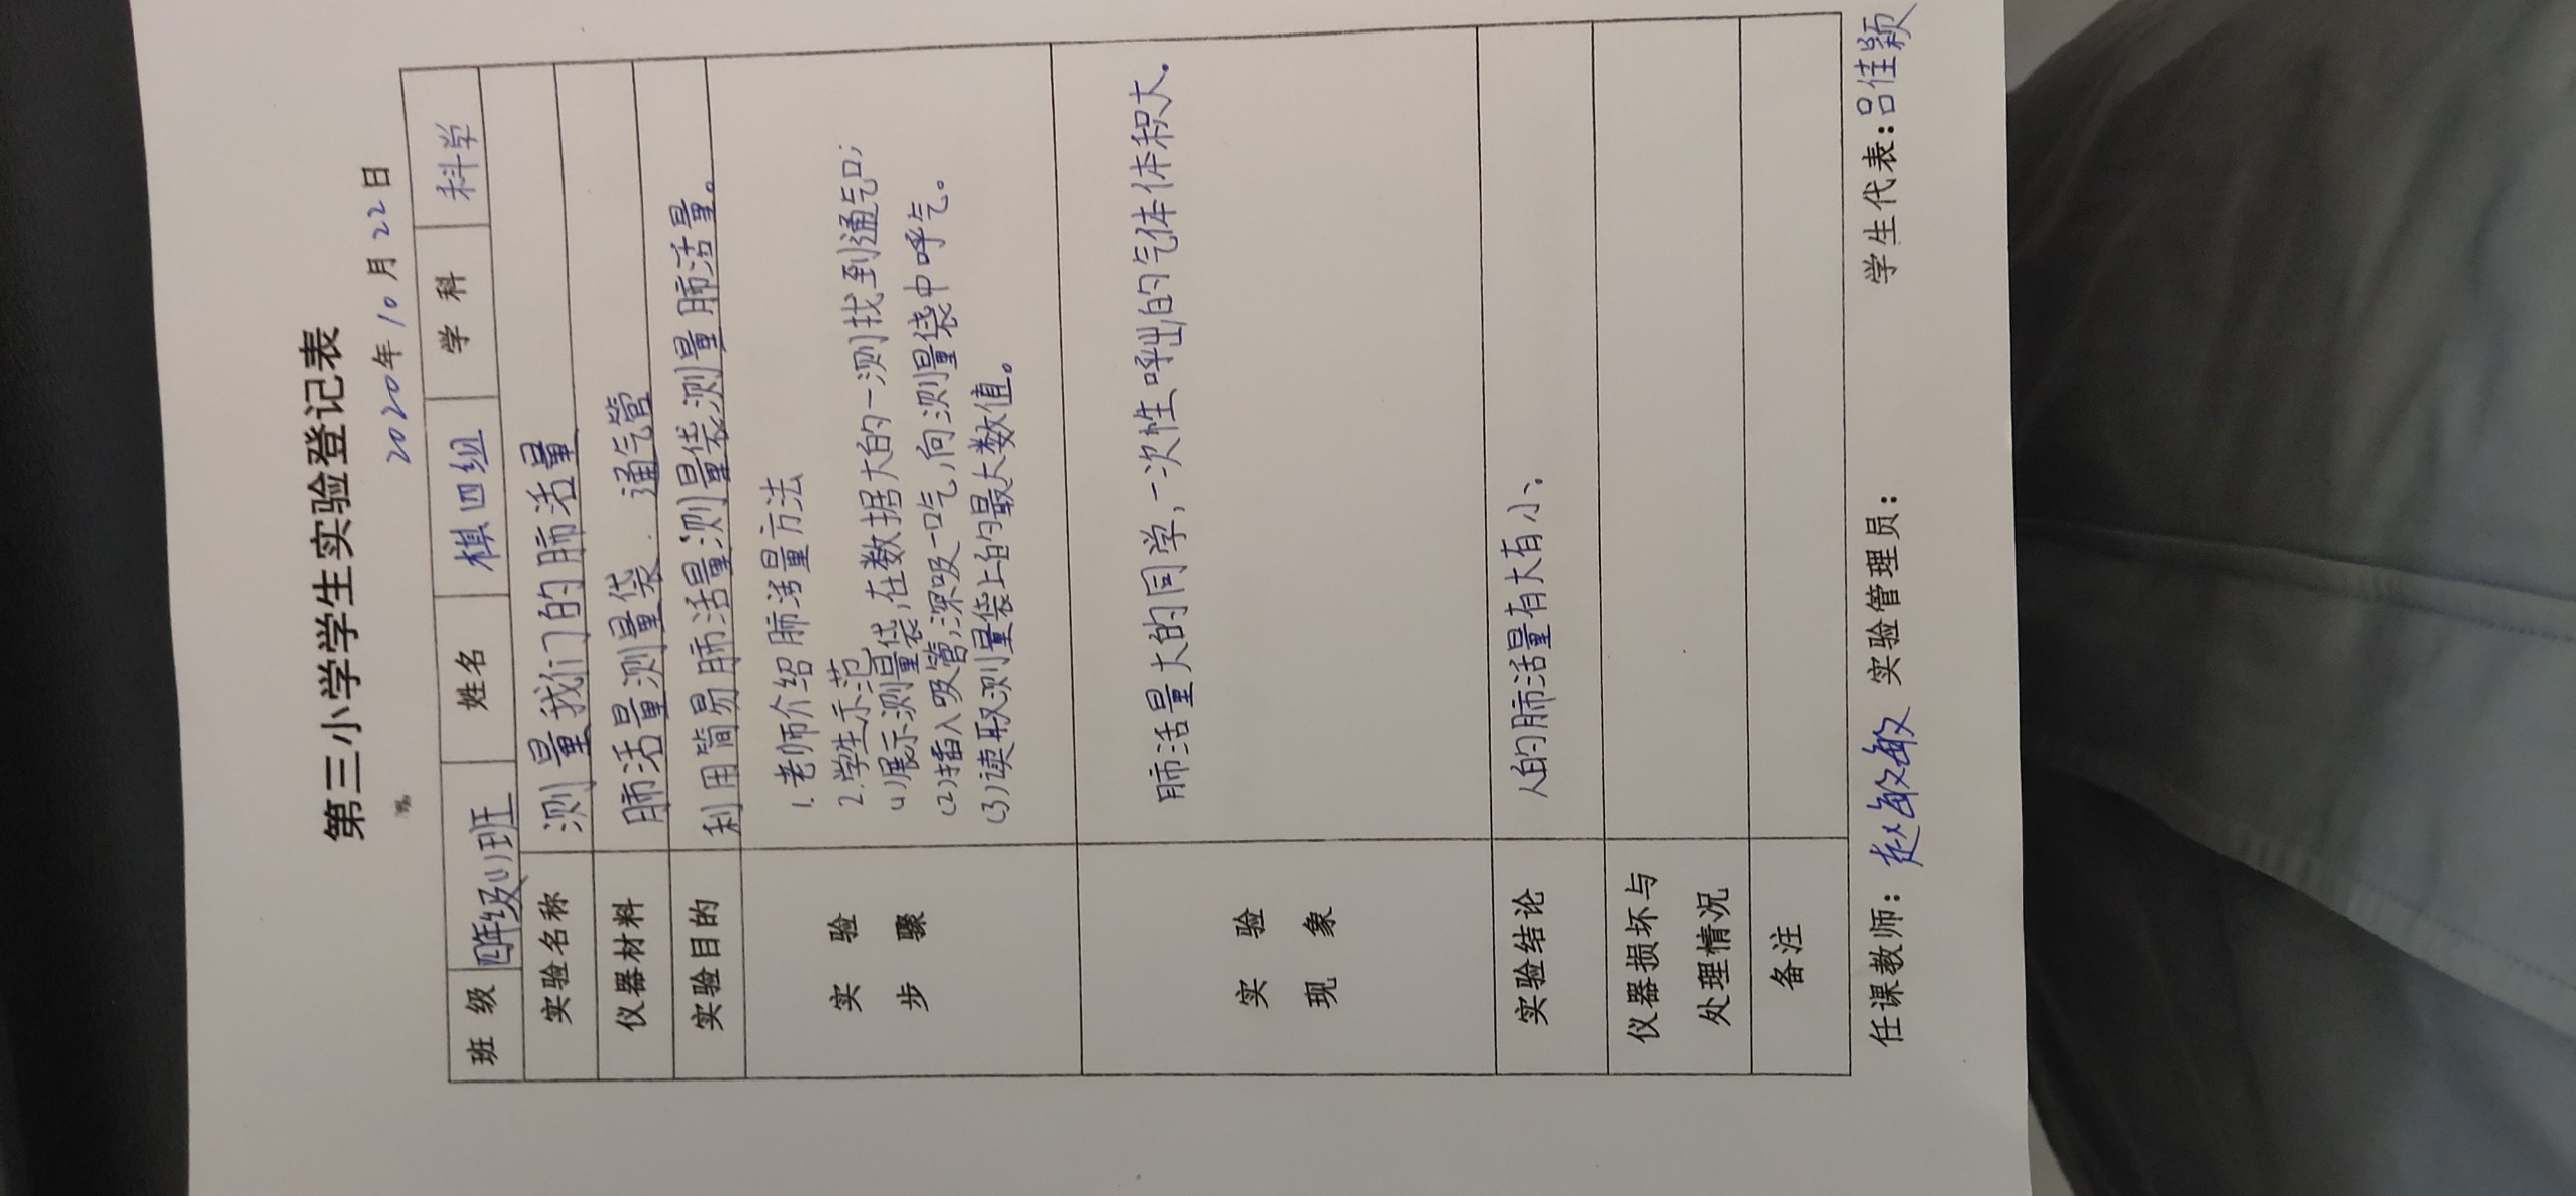 第三小学学生实验登记表
2020年10月22日
班 级 四年级(1)班 姓名 棋四组 学 科 科学
实验名称 测量我们的肺活量
仪器材料 肺活量测量袋、通气管
实验目的 利用简易肺活量测量袋测量肺活量。
实 验
步 骤
1.老师介绍肺活量方法
2.学生示范
(1)展示测量袋,在数据大的一测找到通气口;
(2)插入吸管,深吸一口气,向测量袋中呼气。
(3)读取测量袋上的最大数值。
实 验
现 象
肺活量大的同学,一次性呼出的气体体积大.
实验结论 人的肺活量有大有小.
仪器损坏与
处理情况
备注
任课教师: 赵敏敏 实验管理员: 学生代表:吕佳颖